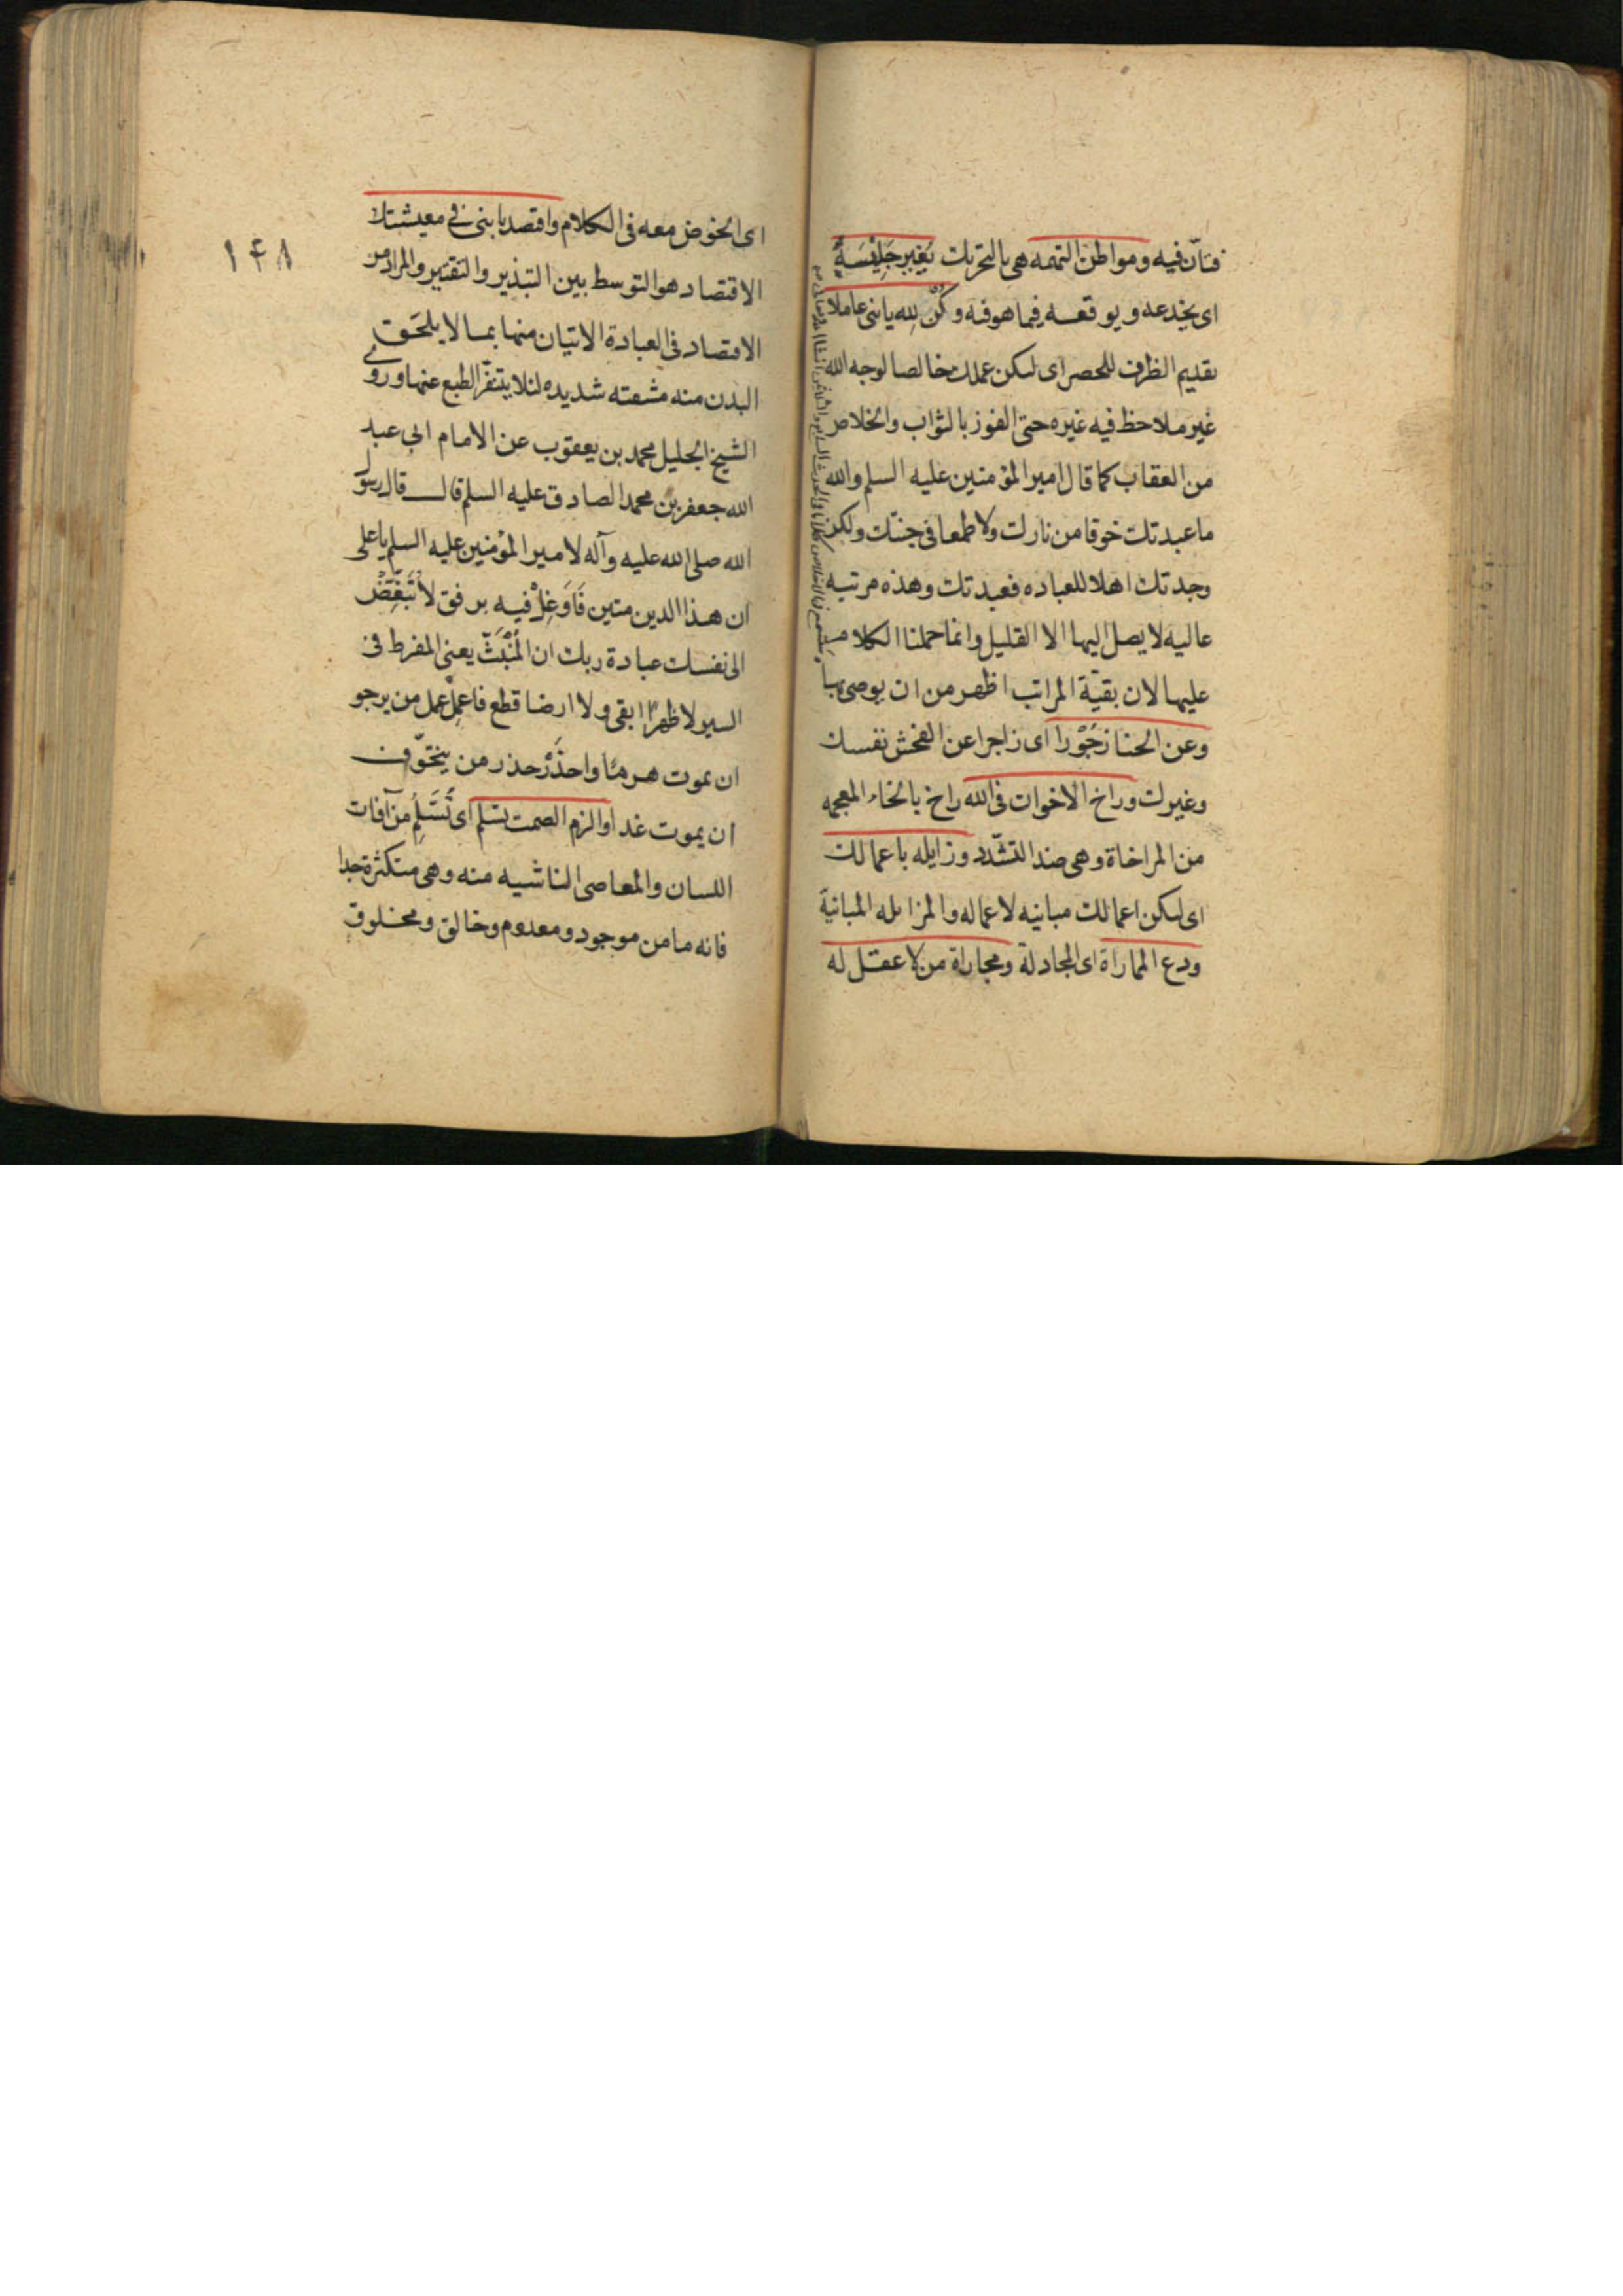 فتأن فيه ومواطن التهمه هى بالتحريك يغير جليسه
اى يخدعه ويوقعه فيما هو فيه وكن لله يا بنى عاملا
تقديم الظرف للحصر اى ليكن عملك خالصا لوجه الله
غير ملاحظ فيه غيره حتى الفوز بالثواب والخلاص
من العقاب كما قال امير المؤمنين عليه السلم والله
ما عبدتك خوفا من نارك ولا طمعا فى جنتك ولكن
وجدتك اهلا للعباده فعبدتك وهذه مرتبه
عاليه لا يصل اليها الا القليل وانما حملنا الكلام
عليها لان بقيّة المراتب اظهر من ان يوصى بها
وعن الخنا زجُوْرا اى زاجرا عن الفحش نفسك
وغيرك وراخ الاخوان فى الله راخ بالخاء المعجمه
من المراخاة وهى ضد التشدّد وزايله باعمالك
اى ليكن اعمالك مباينه لاعماله والمزايله المباينة
ودع المماراة اى المجادلة ومجاراة من لا عقل له
١٤٨
اى الخوض معه فى الكلام واقصد يا بنى فى معيشتك
الاقتصاد هو التوسط بين التبذير والتقتير والمراد من
الاقتصاد فى العبادة الاتيان منها بما لا يلحق
البدن منه مشقته شديده لئلا يتنفّر الطبع عنها وروى
الشيخ الجليل محمد بن يعقوب عن الامام ابى عبد
الله جعفر بن محمد الصادق عليه السلم قال قال رسول
الله صلى الله عليه وآله لامير المؤمنين عليه السلم يا على
ان هذا الدين متين فَاَوْغِلْ فيه برفق لا تُبَغِّضْ
الى نفسك عبادة ربك ان المُنْبَتّ يعنى المفرط فى
السير لا ظهرًا ابقى ولا ارضا قطع فاعمل عمل من يرجو
ان يموت هرمًا واحذَرْ حذر من يتخوّف
ان يموت غدا والزم الصمت تسلم اى تَسْلَمُ من آفات
اللسان والمعاصى الناشيه منه وهى متكثرة جدا
فانه ما من موجود ومعدوم وخالق ومخلوق